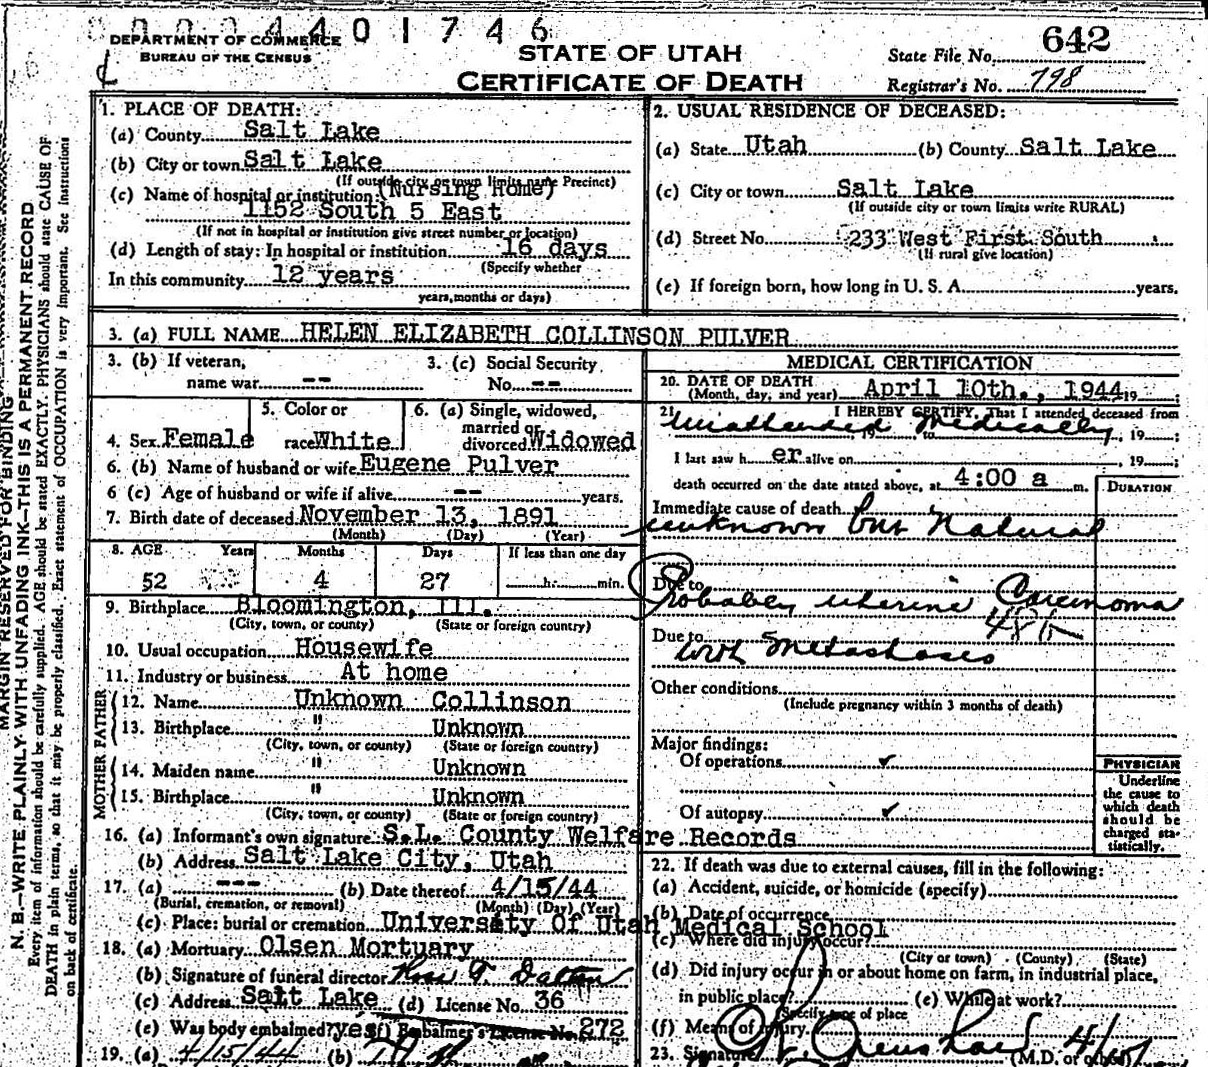 0000 4401746
DEPARTMENT OF COMMERCE
BUREAU OF THE CENSUS
STATE OF UTAH
CERTIFICATE OF DEATH
State File No. 642
Registrar's No. 798
MARGIN RESERVED FOR BINDING
N. B.—WRITE PLAINLY WITH UNFADING INK—THIS IS A PERMANENT RECORD
Every item of information should be carefully supplied. AGE should be stated EXACTLY. PHYSICIANS should state CAUSE OF
DEATH in plain terms, so that it may be properly classified. Exact statement of OCCUPATION is very important. See Instructions
on back of certificate.
1. PLACE OF DEATH:
(a) County Salt Lake
(b) City or town Salt Lake
(If outside city or town limits name Precinct)
(c) Name of hospital or institution: (Nursing Home)
1152 South 5 East
(If not in hospital or institution give street number or location)
(d) Length of stay: In hospital or institution 16 days
(Specify whether
In this community 12 years
years, months or days)
2. USUAL RESIDENCE OF DECEASED:
(a) State Utah (b) County Salt Lake
(c) City or town Salt Lake
(If outside city or town limits write RURAL)
(d) Street No. 233 West First South
(If rural give location)
(e) If foreign born, how long in U. S. A. years.
3. (a) FULL NAME HELEN ELIZABETH COLLINSON PULVER
3. (b) If veteran, name war --
3. (c) Social Security No. --
4. Sex Female
5. Color or race White
6. (a) Single, widowed, married or divorced Widowed
6. (b) Name of husband or wife Eugene Pulver
6 (c) Age of husband or wife if alive -- years.
7. Birth date of deceased November 13, 1891
(Month) (Day) (Year)
8. AGE Years Months Days If less than one day
52 4 27 h. min.
9. Birthplace Bloomington, Ill.
(City, town, or county) (State or foreign country)
10. Usual occupation Housewife
11. Industry or business At home
FATHER
12. Name Unknown Collinson
13. Birthplace " Unknown
(City, town, or county) (State or foreign country)
MOTHER
14. Maiden name " Unknown
15. Birthplace " Unknown
(City, town, or county) (State or foreign country)
16. (a) Informant's own signature S.L. County Welfare Records
(b) Address Salt Lake City, Utah
17. (a) --- (b) Date thereof 4/15/44
(Burial, cremation, or removal) (Month) (Day) (Year)
(c) Place: burial or cremation University Of Utah Medical School
18. (a) Mortuary Olsen Mortuary
(b) Signature of funeral director Ross T. Dalton
(c) Address Salt Lake (d) License No. 36
(e) Was body embalmed? yes (f) Embalmer's License No. 272
19. (a) 4/15/44 (b)
MEDICAL CERTIFICATION
20. DATE OF DEATH
(Month, day, and year) April 10th., 1944 19
21. I HEREBY CERTIFY, That I attended deceased from
unattended Medically, 19 to , 19 ;
I last saw h er alive on , 19 ;
death occurred on the date stated above, at 4:00 a m.
DURATION
Immediate cause of death
unknown but Natural
Due to
Probabley uterine Carcinoma
Due to
with Metastases
Other conditions
(Include pregnancy within 3 months of death)
Major findings:
Of operations ✓
Of autopsy ✓
PHYSICIAN
Underline
the cause to
which death
should be
charged sta-
tistically.
22. If death was due to external causes, fill in the following:
(a) Accident, suicide, or homicide (specify)
(b) Date of occurrence
(c) Where did injury occur?
(City or town) (County) (State)
(d) Did injury occur in or about home on farm, in industrial place,
in public place? (e) While at work?
(Specify type of place
(f) Means of injury
23. Signature (M.D. or other)